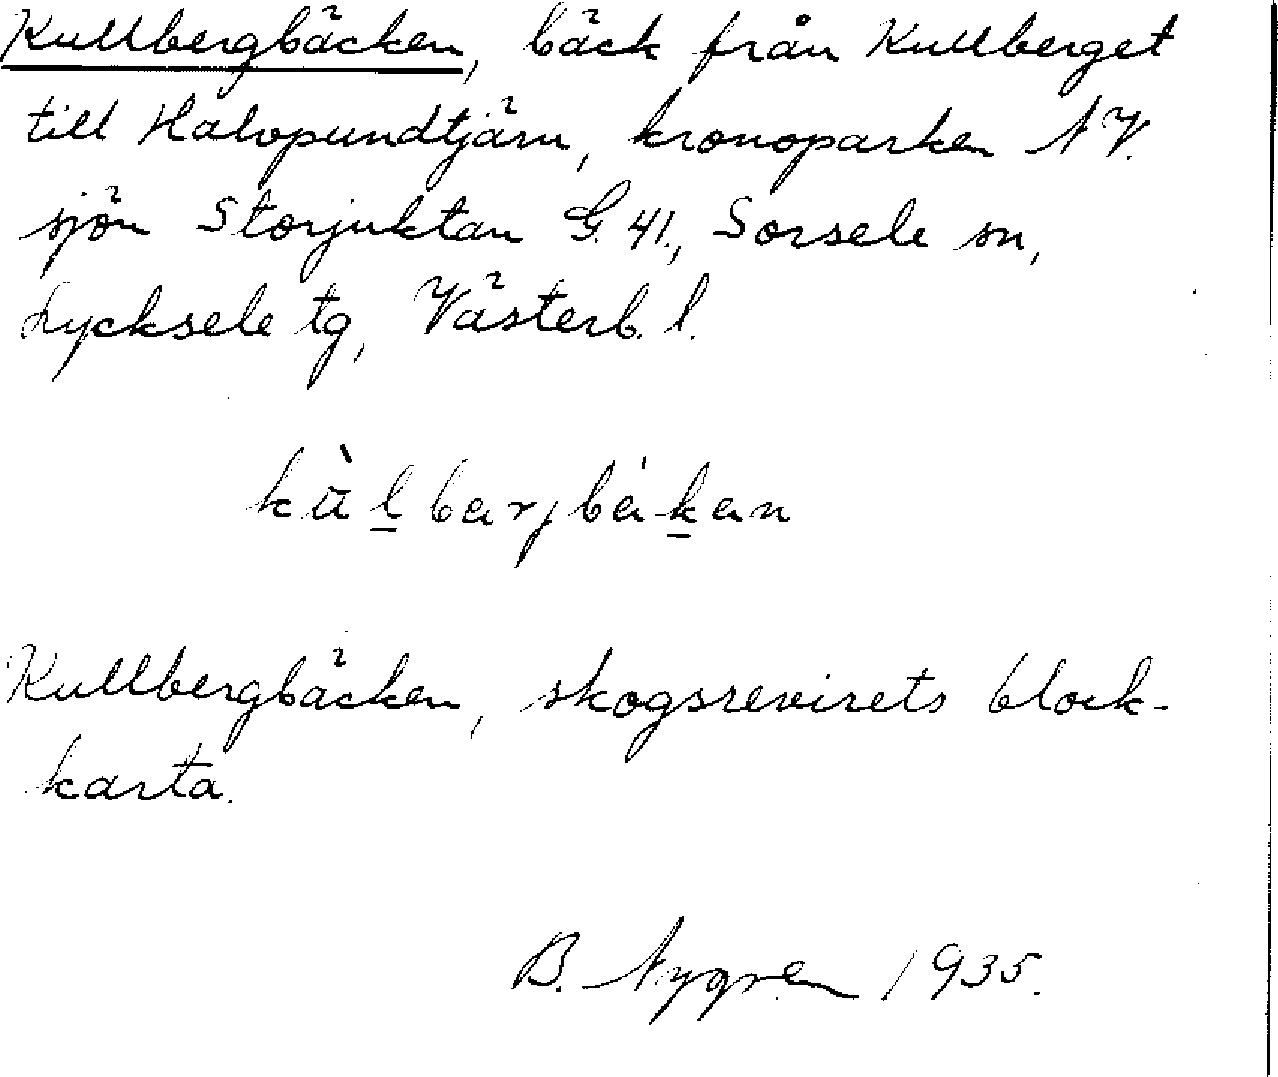 Kullbergbäcken, bäck från Kullberget
till Halvpundtjärn, kronoparken NV.
sjön Storjuktan G. 41., Sorsele sn,
Lycksele tg, Västerb. l.
Kullbergbäcken, skogsrevirets block-
karta.
B. Nygren 1935.